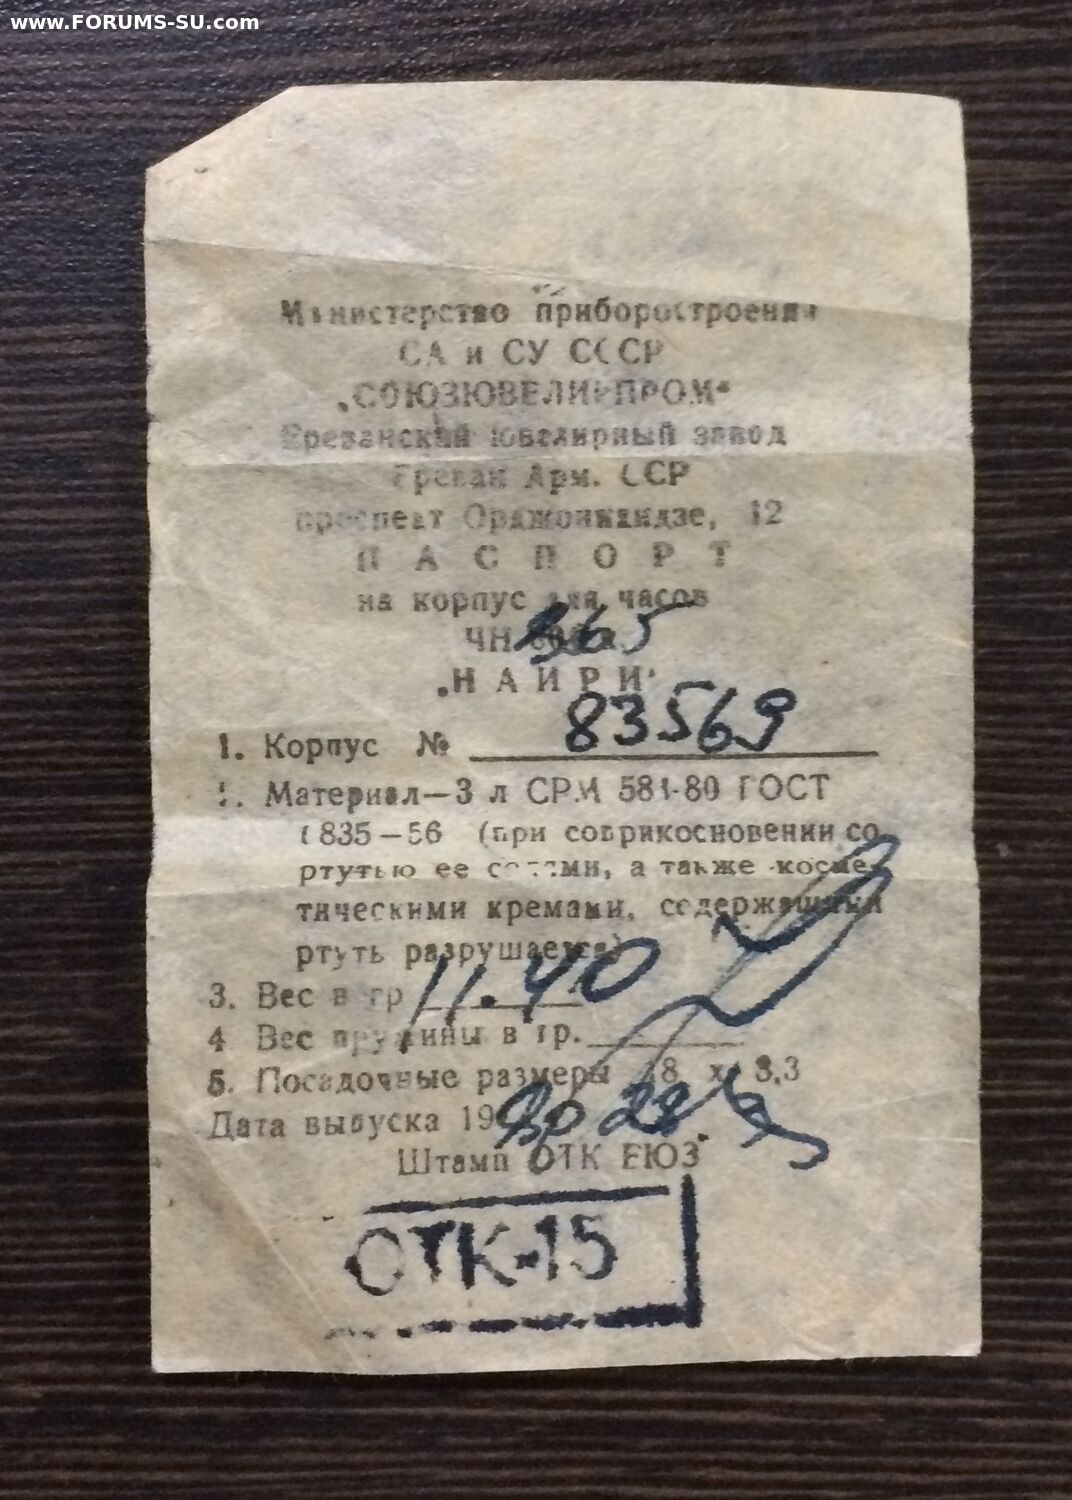 www.FORUMS-SU.com
Министерство приборостроения
СА и СУ СССР
„СОЮЗЮВЕЛИРПРОМ“
Ереванский ювелирный завод
Ереван Арм. ССР
проспект Орджоникидзе, 12
ПАСПОРТ
на корпус для часов
ЧН 365
„НАИРИ“
1. Корпус № 83569
2. Материал—3 л СРМ 581-80 ГОСТ
6835—56 (при соприкосновении со
ртутью ее солями, а также косме-
тическими кремами, содержащими
ртуть разрушается)
3. Вес в гр 11.40
4 Вес пружины в гр.
5. Посадочные размеры 18 х 3,3
Дата выпуска 1980 28
Штамп ОТК ЕЮЗ
ОТК-15